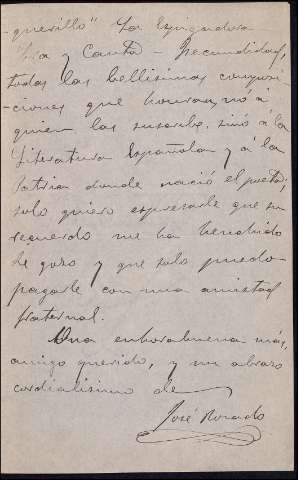 -querillo" La Espigadora
"Ria y Canta - Fecundidad,
todas las bellisimas composi-
-ciones que honran, no á
quien las suscribe, sinó á la
Literatura Española y á la
Patria donde nació el poeta;
solo quiero espresarle que su
recuerdo me ha henchido
de gozo y que solo puedo
pagarle con una amistad
fraternal.
Una enhorabuena más,
amigo querido, y un abrazo
cordialisimo de
José